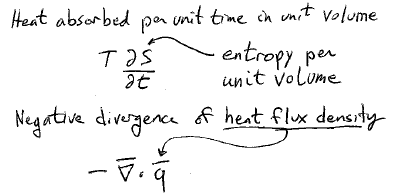 Heat absorbed per unit time in unit volume
T ∂S/∂t
entropy per
unit volume
Negative divergence of heat flux density
- ∇̅ · q̅